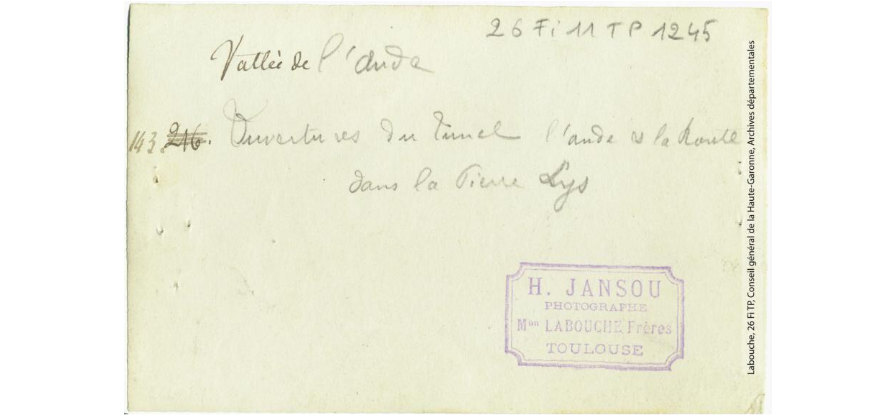 26 Fi 11 TP 1245
Vallée de l'Aude
143 216. Ouvertures du Tunnel l'aude et la Route
dans la Pierre Lys
H. JANSOU
PHOTOGRAPHE
Mon LABOUCHE Frères
TOULOUSE
Labouche, 26 Fi TP, Conseil général de la Haute-Garonne, Archives départementales